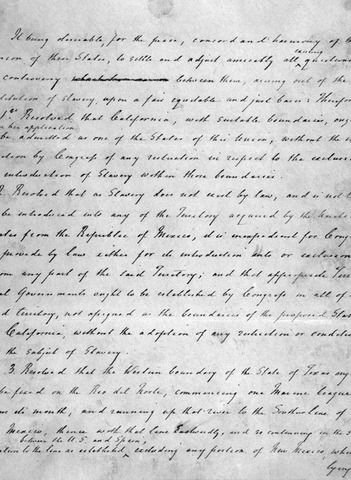 It being desirable, for the peace, concord and harmony of t
existing
union of these States, to settle and adjust amicably all questions
controversy between them, arising out of the
stitution of slavery, upon a fair equitable and just basis: Therefore
1st Resolved that California, with suitable boundaries, oug
her application
be admitted as one of the States of this Union, without the im
sition by Congress of any restriction in respect to the exclusi
introduction of Slavery within those boundaries.
2. Resolved that as Slavery does not exist by law, and is not li
be introduced into any of the Territory acquired by the Unite
ates from the Republic of Mexico, it is inexpedient for Cong
provide by law either for its introduction into or exclusion
om any part of the said Territory; and that appropriate Terri
al Governments ought to be established by Congress in all of
d territory, not assigned as the boundaries of the proposed Stat
California, without the adoption of any restriction or condition
the subject of Slavery.
3. Resolved that the Western boundary of the State of Texas oug
be fixed on the Rio del Norte, commencing one Marine league
its mouth, and running up that river to the Southern line of
Mexico, thence with that line Eastwardly, and so continuing in the s
between the U.S. and Spain,
ction to the line as established, excluding any portion of New Mexico, whe
lying